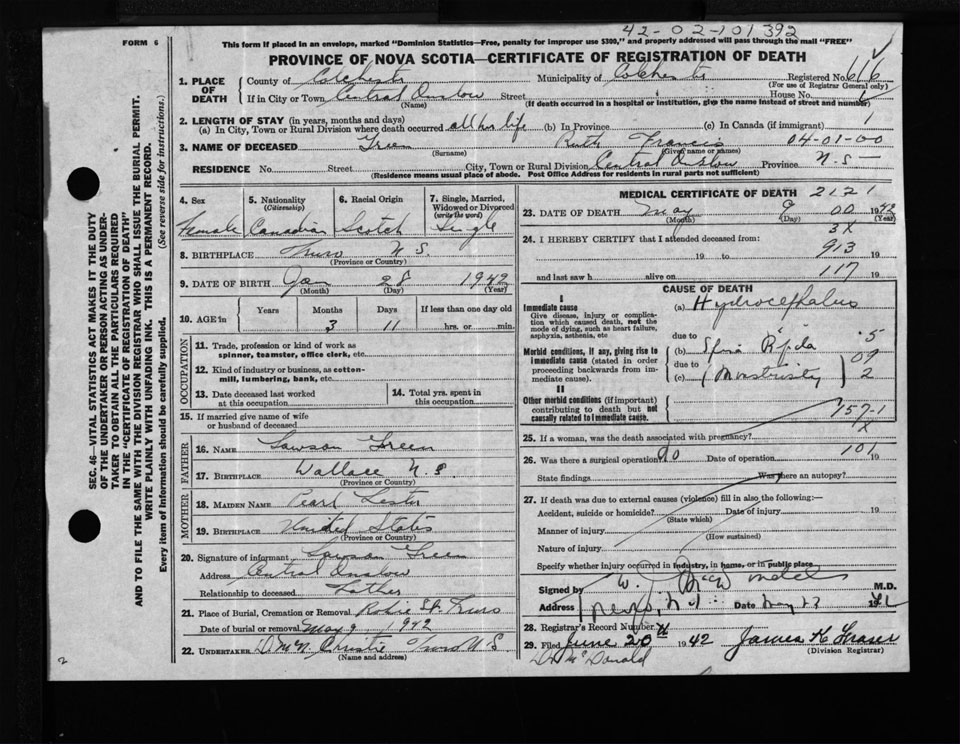 42-02-101392
FORM 6
This form if placed in an envelope, marked "Dominion Statistics—Free, penalty for improper use $300," and properly addressed will pass through the mail "FREE"
PROVINCE OF NOVA SCOTIA—CERTIFICATE OF REGISTRATION OF DEATH
1. PLACE OF DEATH
County of Colchester Municipality of Colchester Registered No. 616
(For use of Registrar General only)
If in City or Town Central Onslow Street House No.
(Name) (If death occurred in a hospital or institution, give the name instead of street and number)
2. LENGTH OF STAY (in years, months and days)
(a) In City, Town or Rural Division where death occurred all her life (b) In Province (c) In Canada (if immigrant) 1
3. NAME OF DECEASED Green Ruth Francis 04-01-00
(Surname) (Given name or names)
RESIDENCE No. Street City, Town or Rural Division Central Onslow Province N.S—
(Residence means usual place of abode. Post Office Address for residents in rural parts not sufficient)
4. Sex
Female
5. Nationality
(Citizenship)
Canadian
6. Racial Origin
Scotch
7. Single, Married, Widowed or Divorced
(write the word)
Single
8. BIRTHPLACE Truro N.S.
(Province or Country)
9. DATE OF BIRTH Jan 28 1942
(Month) (Day) (Year)
10. AGE in Years Months Days If less than one day old
3 11 hrs. or min.
OCCUPATION
11. Trade, profession or kind of work as spinner, teamster, office clerk, etc.
12. Kind of industry or business, as cotton-mill, lumbering, bank, etc.
13. Date deceased last worked at this occupation
14. Total yrs. spent in this occupation
15. If married give name of wife or husband of deceased
FATHER
16. NAME Lawson Green
17. BIRTHPLACE Wallace N.S
(Province or Country)
MOTHER
18. MAIDEN NAME Pearl Lester
19. BIRTHPLACE United States
(Province or Country)
20. Signature of informant Lawson Green
Address Central Onslow
Relationship to deceased Father
21. Place of Burial, Cremation or Removal Robie St. Truro
Date of burial or removal May 9 1942
22. UNDERTAKER Christie Truro N.S
(Name and address)
MEDICAL CERTIFICATE OF DEATH 2121
23. DATE OF DEATH May 9 00 1942
(Month) (Day) (Year)
3X
24. I HEREBY CERTIFY that I attended deceased from:
913
19 to 19
117
and last saw h alive on 19
CAUSE OF DEATH
I
Immediate cause
Give disease, injury or complication which caused death, not the mode of dying, such as heart failure, asphyxia, asthenia, etc
(a) Hydrocephalus
due to
5
Morbid conditions, if any, giving rise to immediate cause (stated in order proceeding backwards from immediate cause).
(b) Spina Bifida
due to
09
(c)
2
II
Other morbid conditions (if important) contributing to death but not causally related to immediate cause.
157-1
1X
25. If a woman, was the death associated with pregnancy?
26. Was there a surgical operation? No Date of operation 101 19
State findings Was there an autopsy?
27. If death was due to external causes (violence) fill in also the following:—
Accident, suicide or homicide? Date of injury 19
(State which)
Manner of injury
(How sustained)
Nature of injury
Specify whether injury occurred in industry, in home, or in public place
Signed by W. M.D.
Address Date May 23 1942
28. Registrar's Record Number
29. Filed June 20 1942 James K Fraser
(Division Registrar)
McDonald
SEC. 46—VITAL STATISTICS ACT MAKES IT THE DUTY OF THE UNDERTAKER OR PERSON ACTING AS UNDERTAKER TO OBTAIN ALL THE PARTICULARS REQUIRED IN THE "CERTIFICATE OF REGISTRATION OF DEATH"
AND TO FILE THE SAME WITH THE DIVISION REGISTRAR WHO SHALL ISSUE THE BURIAL PERMIT.
WRITE PLAINLY WITH UNFADING INK. THIS IS A PERMANENT RECORD.
Every item of information should be carefully supplied. (See reverse side for instructions.)
2